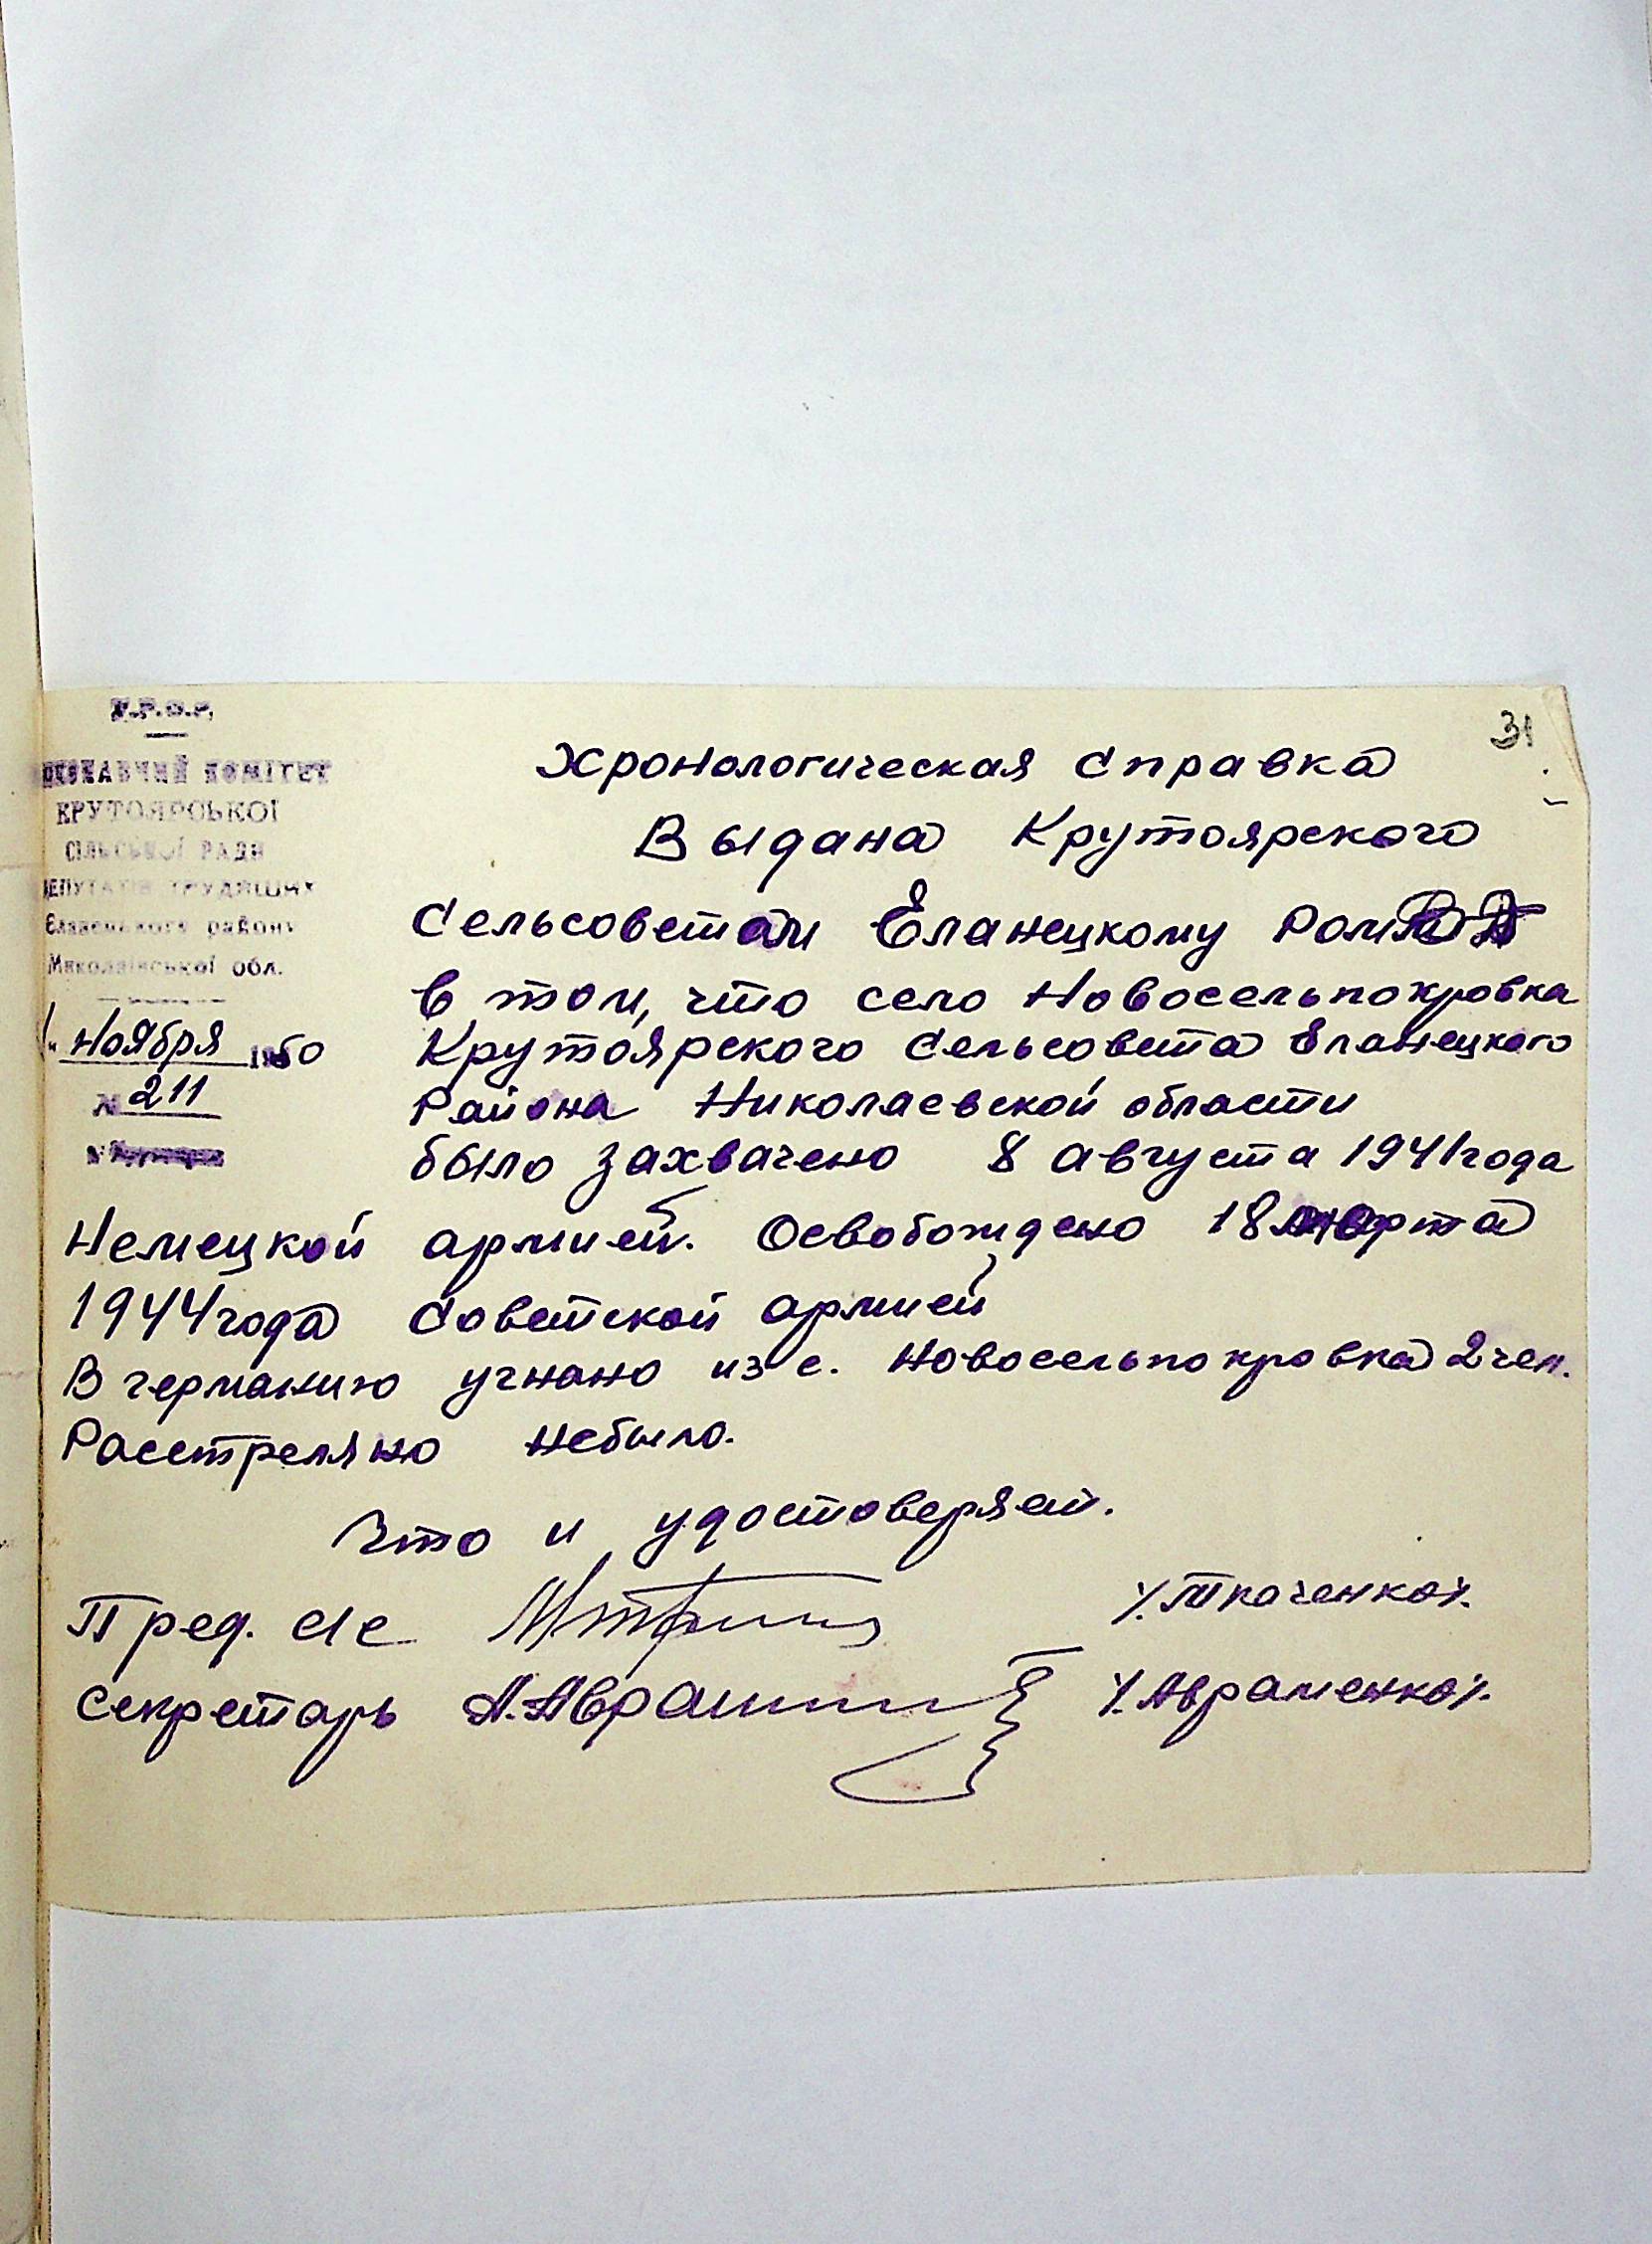 31
У.Р.С.Р.
ВИКОНАВЧИЙ КОМІТЕТ
КРУТОЯРСЬКОЇ
СІЛЬСЬКОЇ РАДИ
ДЕПУТАТІВ ТРУДЯЩИХ
Єланецького району
Миколаївської обл.
Ноября 1950
№ 211
Хронологическая справка
Выдана Крутоярского
Сельсоветом Еланецкому
в том, что село Новосельпокровка
Крутоярского сельсовета Еланецкого
Района Николаевской области
было захвачено 8 августа 1941 года
Немецкой армией. Освобождено 18 марта
1944 года Советской армией
В германию угнано из с. Новосельпокровка 2 чел.
Расстреляно небыло.
Что и удостоверяем.
Пред. с/с /Ткаченко/.
Секретарь А. /Авраменко/.